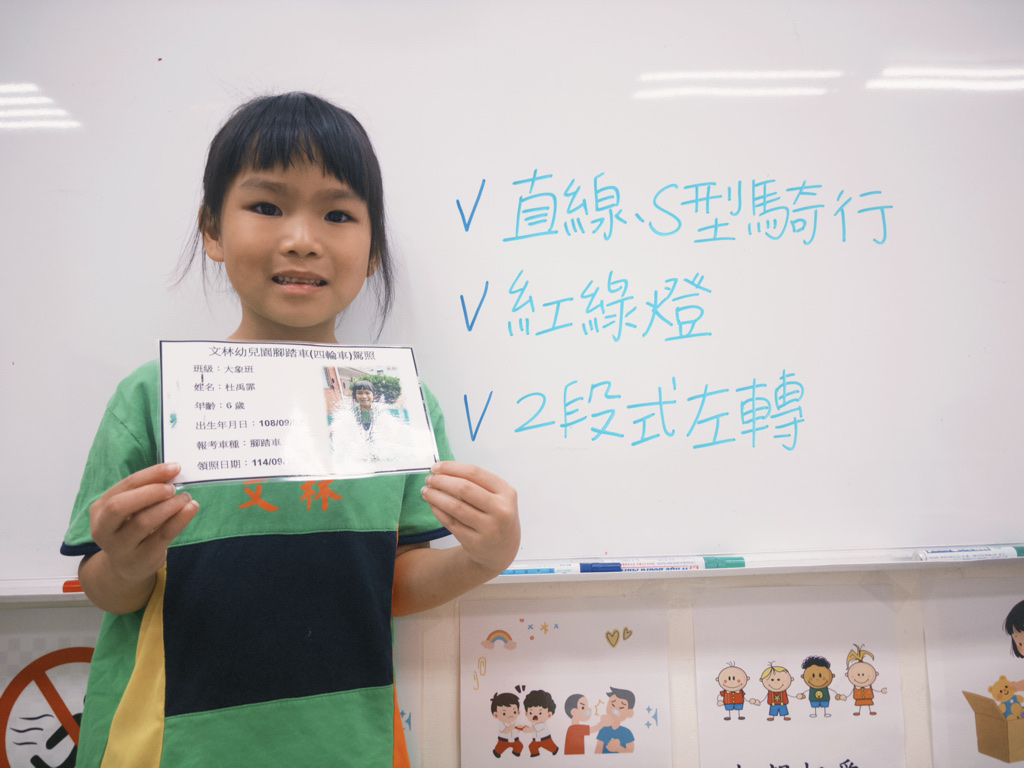 直線、S型騎行
紅綠燈
2段式左轉
文林幼兒園腳踏車(四輪車)駕照
班級：大象班
姓名：杜禹霏
年齡：6 歲
出生年月日：108/09/
報考車種：腳踏車
領照日期：114/09
文林